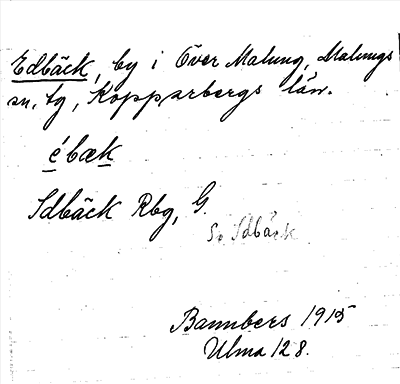 Edbäck, by i Över Malung, Malungs
sn, tg, Kopparbergs län.
é bæk
Idbäck Rbg, G.
Se Idbäck
Bannbers 1915
Ulma 128.